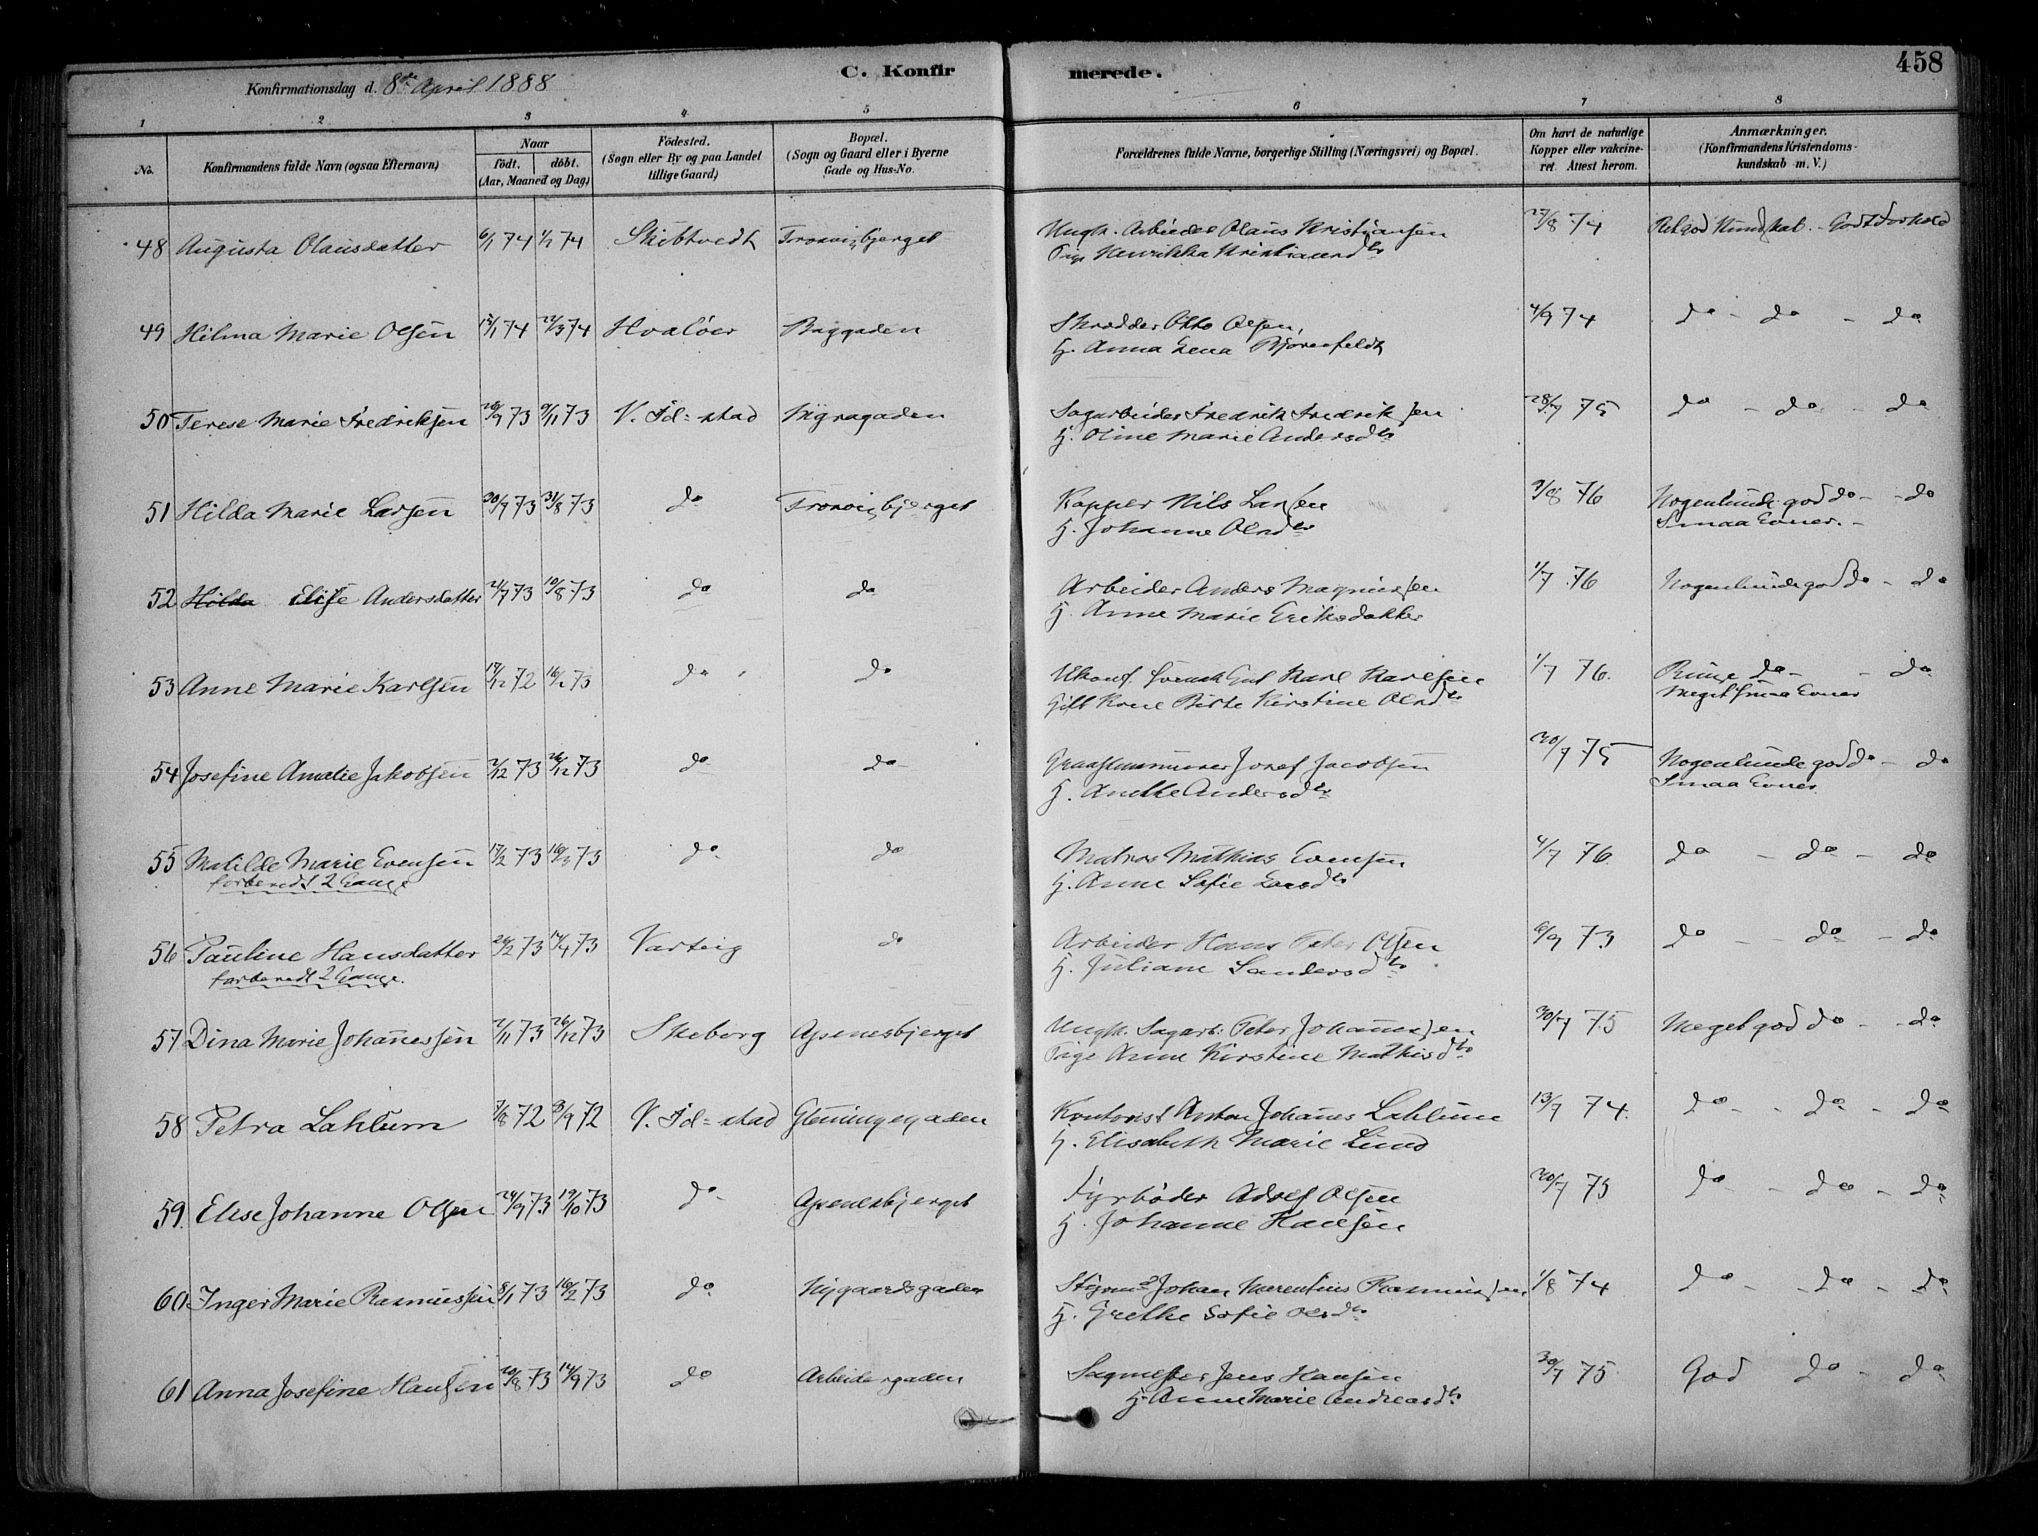 458
Konfirmationsdag d. 8de April 1888
C. Konfirmerede.
1 2 3 4 5 6 7 8
No.
Konfirmandens fulde Navn (ogsaa Efternavn)
Naar
födt. döbt.
(Aar, Maaned og Dag)
Födested.
(Sogn eller By og paa Landet
tillige Gaard)
Bopæl.
(Sogn og Gaard eller i Byerne
Gade og Hus-No.
Forældrenes fulde Navne, borgerlige Stilling (Næringsvei) og Bopæl.
Om havt de naturlige
Kopper eller vakcine-
ret. Attest herom.
Anmærkninger.
(Konfirmandens Kristendoms-
kundskab m. V.)
48 Augusta Olausdatter 6/1 74 1/2 74 Skibtvedt Trosvigbjerget Ungk. Arbeider Olaus Kristiansen 27/8 74 Kundskab. - Godt Forhold
Pige Henrikka Kristiansdtr
49 Hilma Marie Olsen 13/1 74 22/3 74 Hvalöer Baggaden Skrædder Otto Olsen, 4/9 74 do - do - do
H. Anna Lena Bjorenfeldt
50 Terese Marie Fredriksen 28/9 73 9/11 73 V. Fd=stad Nygagaden Sagarbeider Fredrik Fredriksen 28/7 75 do - do - do
H. Oline Marie Andersdtr
51 Hilda Marie Larsen 30/7 73 31/8 73 do Trosvigbjerget Kapper Nils Larsen 9/8 76 Nogenlunde god do - - do
H. Johanne Olsdtr Smaa Evner. -
52 Elise Andersdatter 21/7 73 10/8 73 do do Arbeider Anders Magnussen 1/7 76 Nogenlunde god do - do
H. Anne Marie Eriksdatter
53 Anne Marie Karlsen 17/12 72 16/2 73 do do Ukonf. svensk Karl Karlsen 1/7 76. Ringe do - - do
Gift Kone Birte Kirstine Olsdtr Meget smaa Evner
54 Josefine Amalie Jakobsen 2/12 73 26/12 73 do do Josef Jacobsen 30/7 75 Nogenlunde god do - do
H. Anette Andersdtr Smaa Evner.
55 Matilde Marie Evensen 17/2 73 16/3 73 do do Matros Mathias Evensen 4/7 76 do - do - do
forberedt 2 Gange H. Anne Sofie Larsdtr
56 Pauline Hansdatter 24/2 73 17/4 73 Varteig do Arbeider Hans Peter Olsen 6/9 73 do - - do - do
forberedt 2 Gange. H. Juliane Sandersdtr
57 Dina Marie Johannessen 2/11 73 26/12 73 Skeberg Apenesbjerget Ungk. Sagarb. Peter Johannessen 30/7 75 Meget god do - - do
Pige Anne Kirstine Mathisdtr
58 Petra Lahlum 7/8 72 8/9 72 V. Fd=stad Glemmingegaden Kontorist Anton Johannes Lahlum 13/7 74. do - - do - do
H. Elisabeth Marie Lund
59. Elise Johanne Olsen 24/9 73 19/10 73 do Apenesbjerget Fyrböder Adolf Olsen 20/7 75 do - do - do
H. Johanne Hansen
60 Inger Marie Rasmussen 8/1 73 16/2 73 do Nygaardsgaden Johan Rasmussen 1/8 74 do - - do - do
H. Grethe Sofie Olsdtr
61 Anna Josefine Hansen 20/8 73 14/9 73 do Arbeidergaden Sagmester Jens Hansen 30/7 75. God do - do
H. Anne Marie Andreasdtr